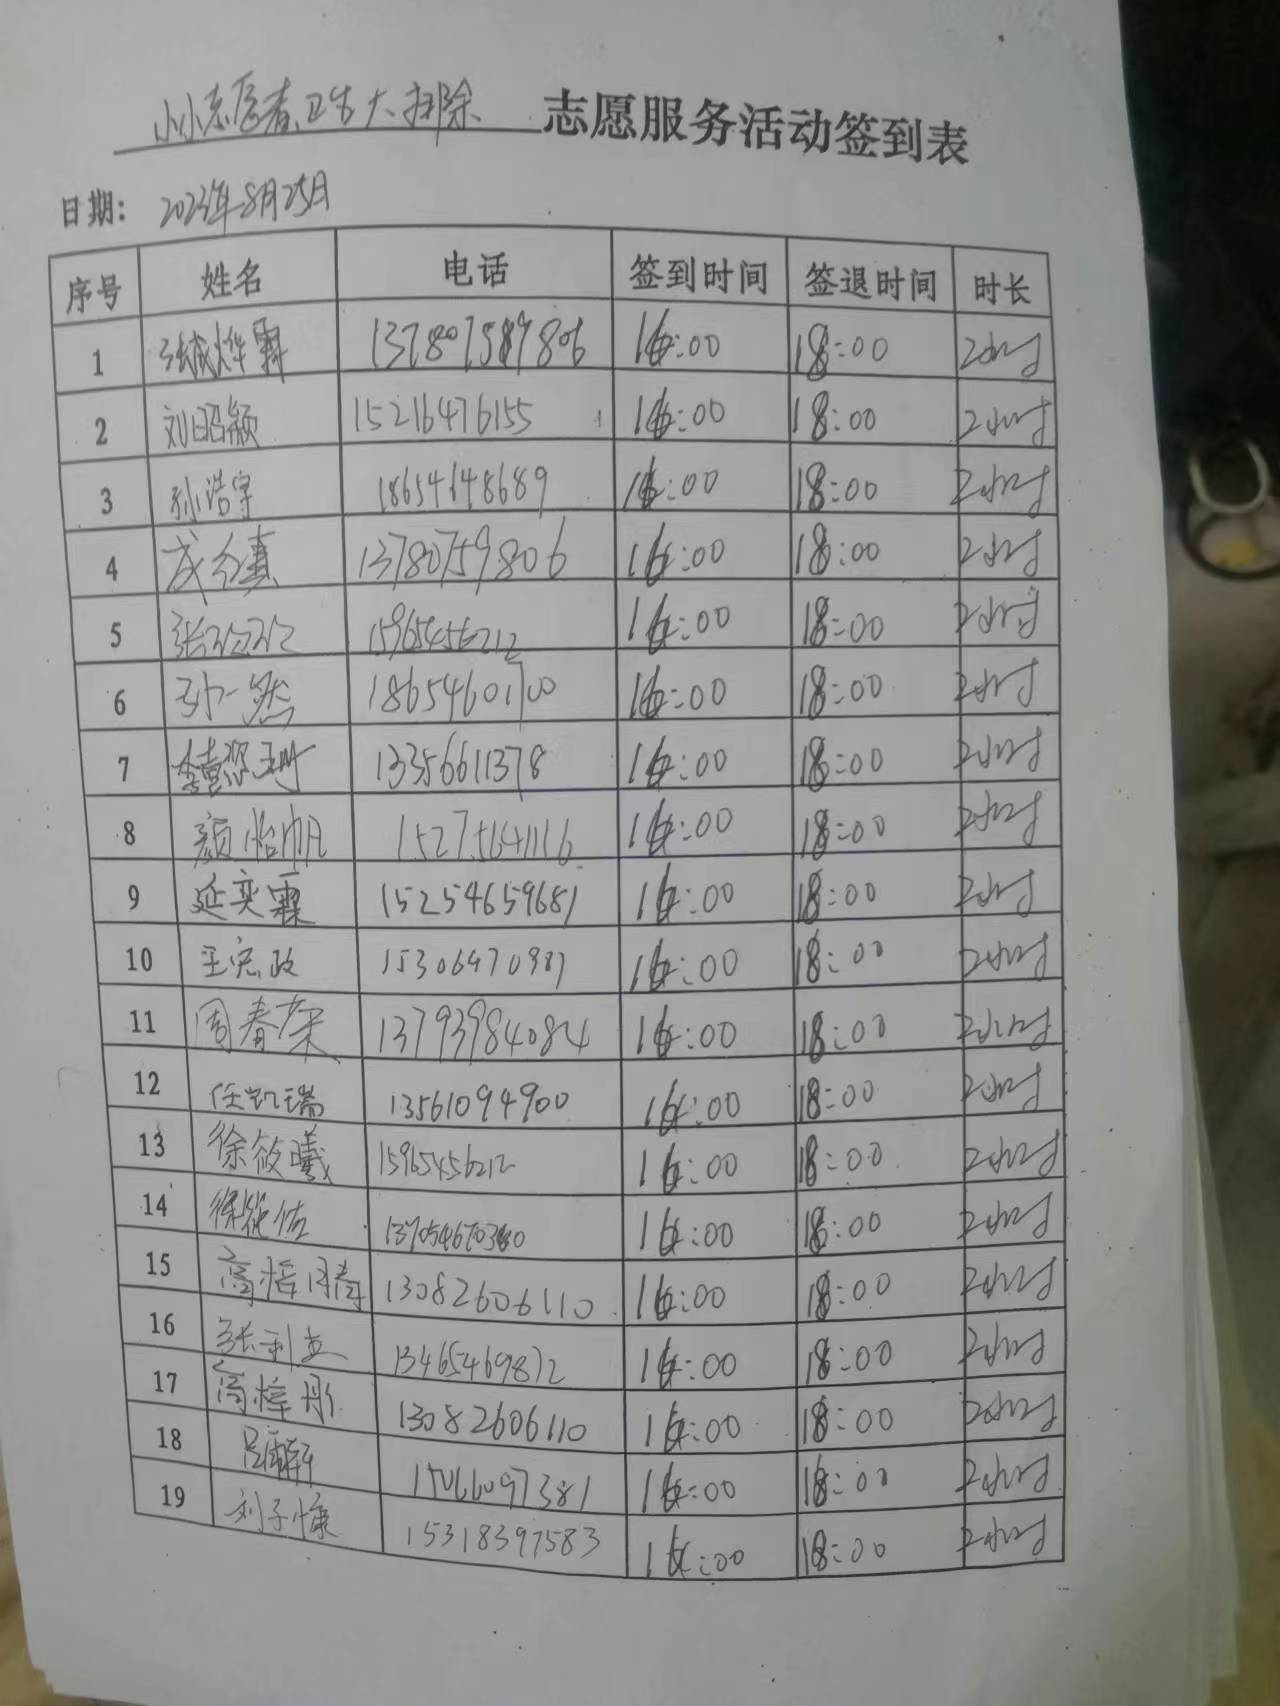 小小志愿者卫生大扫除 志愿服务活动签到表
日期: 2023年8月25日
序号 姓名 电话 签到时间 签退时间 时长
1 16:00 18:00 2小时
2 刘昭颖 15216476155 16:00 18:00 2小时
3 孙浩宇 18654648689 16:00 18:00 2小时
4 13780759806 16:00 18:00 2小时
5 张玲玲 15965456212 16:00 18:00 2小时
6 孙一然 18654601700 16:00 18:00 2小时
7 13356611378 16:00 18:00 2小时
8 颜怡帆 15275164116 16:00 18:00 2小时
9 延奕霖 15254659681 16:00 18:00 2小时
10 王宪政 15306470987 16:00 18:00 2小时
11 周春荣 13793984084 16:00 18:00 2小时
12 任凯瑞 13561094900 16:00 18:00 2小时
13 徐筱曦 15965456212 16:00 18:00 2小时
14 16:00 18:00 2小时
15 13082606110 16:00 18:00 2小时
16 13465469872 16:00 18:00 2小时
17 高梓彤 13082606110 16:00 18:00 2小时
18 15066097381 16:00 18:00 2小时
19 刘子慷 15318397583 16:00 18:00 2小时